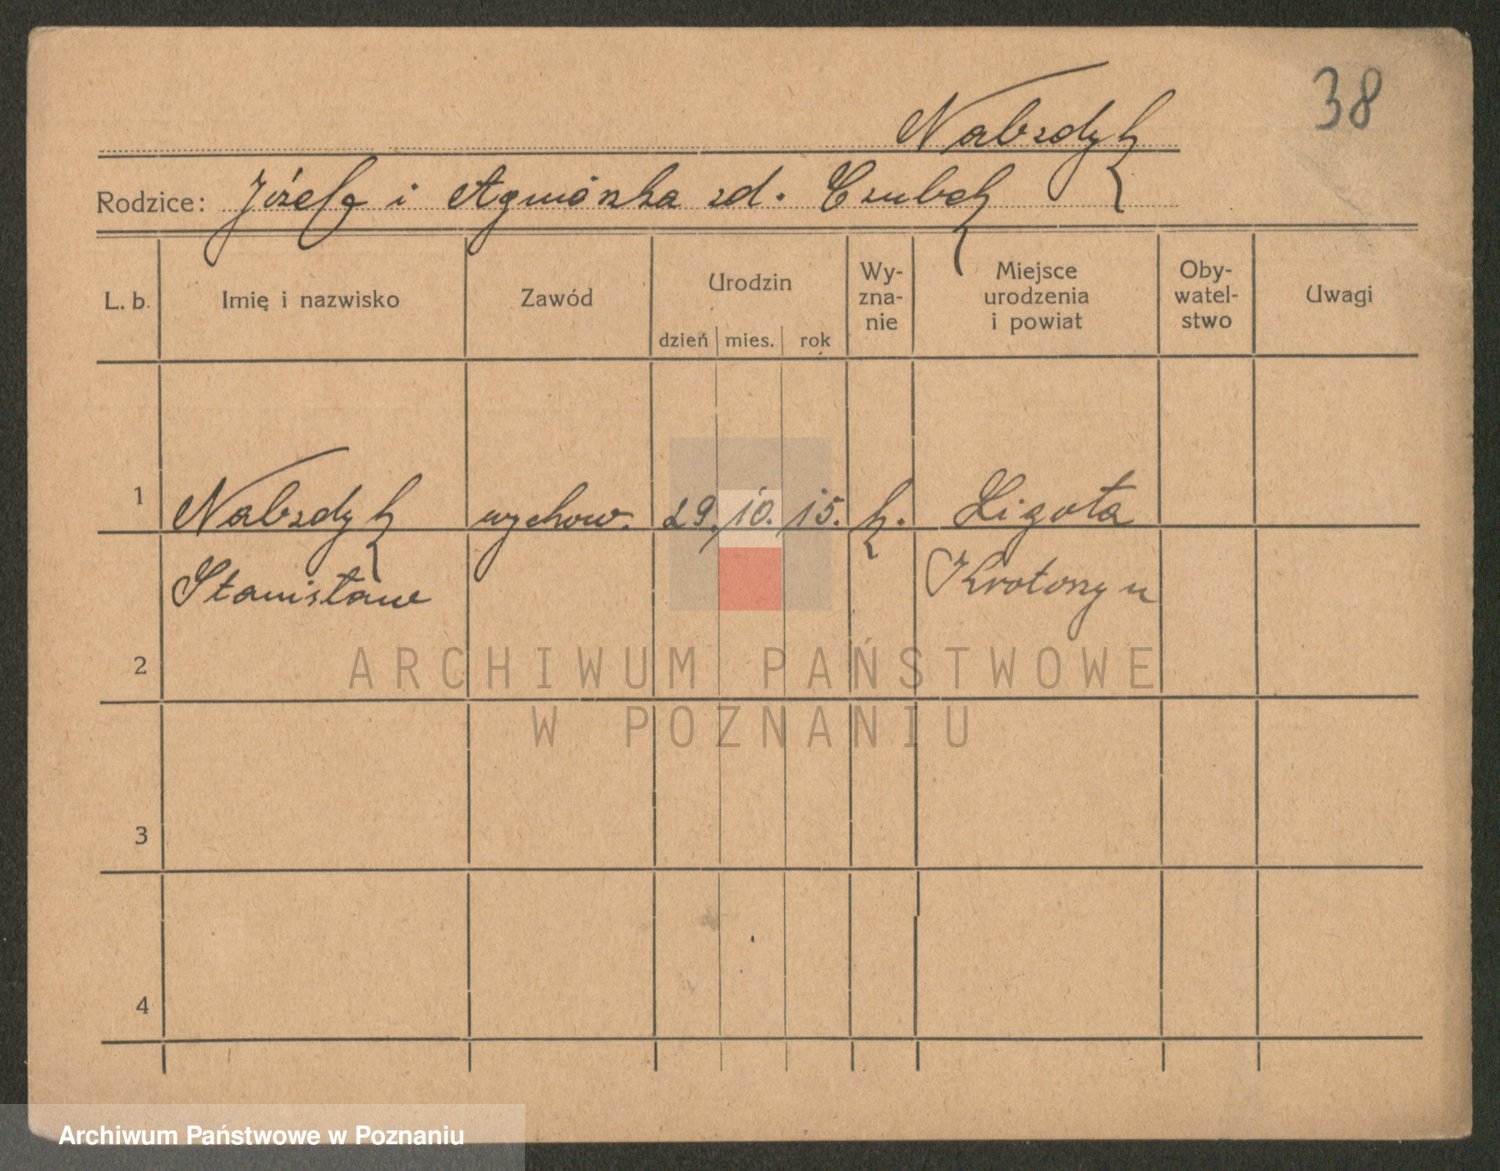 38
Nabzdyk
Rodzice: Józefa i Agnieszka zd. Czubak
L. b. Imię i nazwisko Zawód Urodzin dzień mies. rok Wy-zna-nie Miejsce urodzenia i powiat Oby-watel-stwo Uwagi
1 Nabzdyk wychow. 29. 10. 15. k. Ligota
Stanisław Krotoszyn
2
ARCHIWUM PAŃSTWOWE
W POZNANIU
3
4
Archiwum Państwowe w Poznaniu